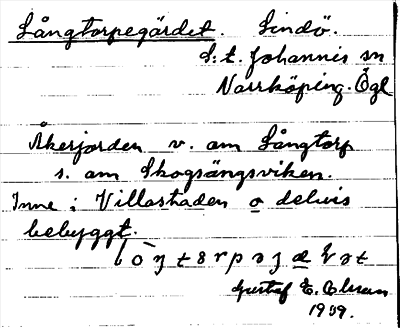 Långtorpegärdet. Lindö.
S:t. Johannis sn
Norrköping. Ögl
Åkerjorden v. om Långtorp
s. om Skogsängsviken.
Inne i Villastaden o delvis
bebyggt.
Gustaf E.
1939.